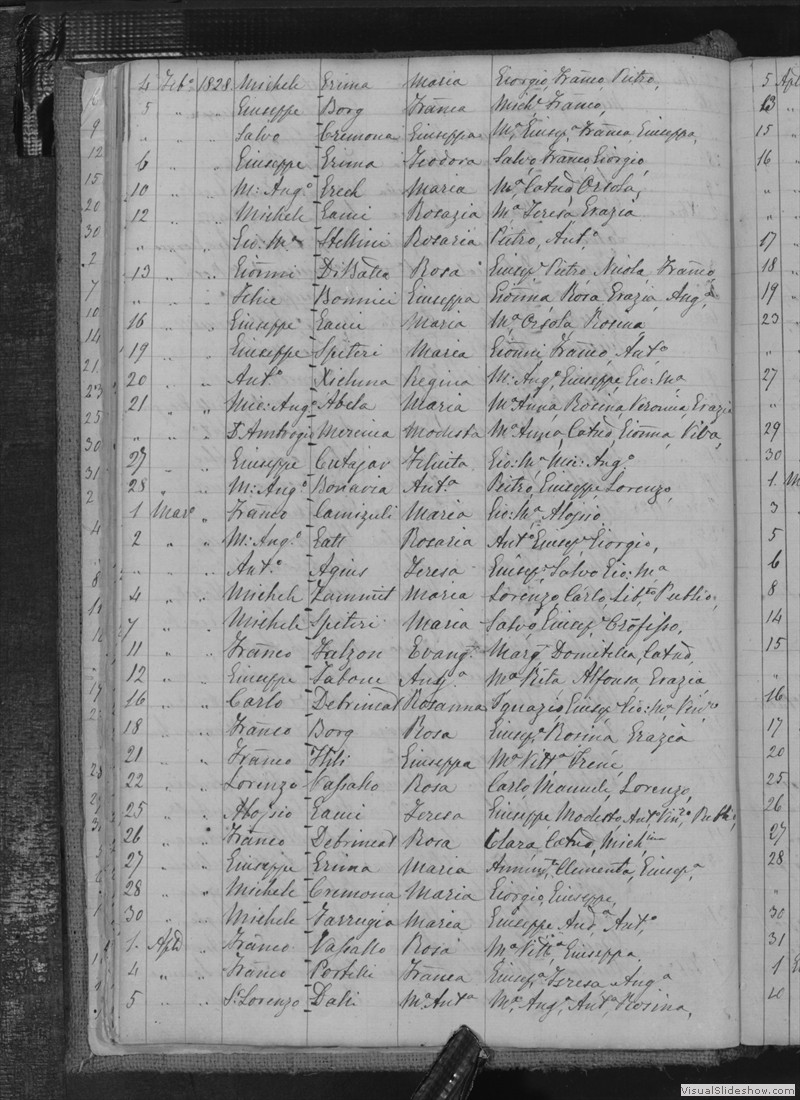 4 Feb.o 1828 Michele Grima Maria Giorgio, Franco, Pietro,
5 " " Giuseppe Borg Franca Mich.e Franco,
" " " Salvo Cremona Giuseppa M.a Giusep.a Franca Giuseppa,
6 " " Giuseppe Grima Teodora Salvo, Franco, Giorgio,
10 " " M: Ang.o Grech Maria M.a Catna, Orsola,
12 " " Michele Gauci Rosazia M.a Teresa Grazia
" " " Gio: M.a Stellini Rosaria Pietro, Ant.o
13 " " Gionni DiBatta Rosa Giusep.e Pietro Nicola Franco
" " " Felice Bonnici Giuseppa Gionna Rosa Grazia, Ang.a
16 " " Giuseppe Gauci Maria M.a Orsola Rosina
19 " " Giuseppe Spiteri Maria Gionni, Franco, Ant.o
20 " " Ant.o Xicluna Regina M: Ang.o Giuseppe, Gio: M.a
21 " " Mic: Ang.o Abela Maria M.a Anna Rosina Veronica, Grazia
" " " D'Ambrogio Mercieca Modesta M.a Anna, Catna, Gionna, Viva,
27 " " Giuseppe Cutajar Felicita Gio: M.a Mic: Ang.o
28 " " M: Ang.o Bonavia Ant.a Pietro, Giuseppe, Lorenzo,
1 Mar.o " Franco Camizuli Maria Gio: M.a Alojsio,
2 " " M: Ang.o Gatt Rosaria Ant.o Giusep.e Giorgio,
" " " Ant.o Agius Teresa Giusep.e Salvo Gio: M.a
4 " " Michele Zammit Maria Lorenzo, Carlo, Publio,
7 " " Michele Spiteri Maria Salvo, Giusep.e Crofisso,
11 " " Franco Falzon Evang.a Marg.a Domitilla, Catna,
12 " " Giuseppe Tabone Ang.a M.a Rita Alfonsa, Grazia
16 " " Carlo Debrincat Rosanna Ignazio, Giusep.e Gio: M.a Vin.o
18 " " Franco Borg Rosa Giusep.a Rosina Grazia
21 " " Franco Hili Giuseppa M.a Vitt.a Irene,
22 " " Lorenzo Vassallo Rosa Carlo, Manuele, Lorenzo,
25 " " Aloysio Gauci Teresa Giuseppe Modesto, Ant.o Vin.o Publio,
26 " " Franco Debrincat Rosa Clara, Catna, Mich.ina
27 " " Giuseppe Grima Maria Annunz.a Clementa, Giusep.a
28 " " Michele Cremona Maria Giorgio, Giuseppe,
30 " " Michele Farrugia Maria Giuseppe And.a Ant.o
1. Aple " Franco Vassallo Rosa M.a Vitt.a Giuseppa
4 " " Franco Portelli Franca Giusep.a Teresa Ang.a
5 " " S. Lorenzo Dalli M.a Ant.a M.a Ang.a Ant.a Rosina,
5 Aple
13 "
15 "
16 "
17 "
18 "
19 "
23 "
27 "
29 "
30 "
1
3
5
6
8
14
15
16
17
20
25
26
27
28
30
31
1
VisualSlideshow.com